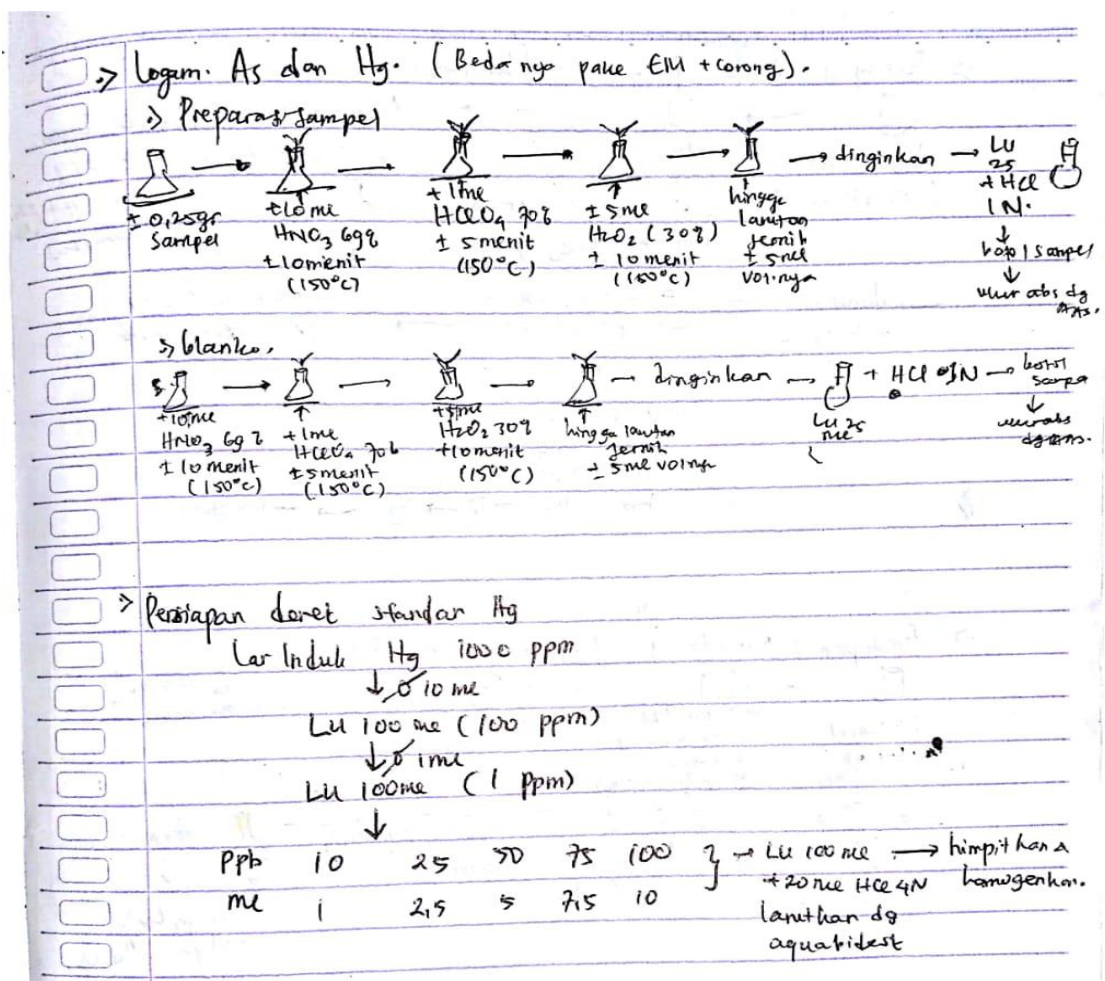 Logam. As dan Hg. (Bedanya pake EM + corong).
Preparasi sampel
± 0,25gr
Sampel
+10 ml
HNO3 69%
±10menit
(150°C)
+ 1ml
HClO4 70%
± 5menit
(150°C)
± 5ml
H2O2 (30%)
± 10menit
(150°C)
hingga
larutan
jernih
± 5ml
vol.nya
dinginkan
LU
25
+ HCl
1N.
botol sampel
ukur abs dg
AAS.
blanko.
+10ml
HNO3 69%
± 10menit
(150°C)
+1ml
HClO4 70%
±5menit
(150°C)
+5ml
H2O2 30%
+10menit
(150°C)
hingga larutan
jernih
± 5ml volnya
dinginkan
LU 25
ml
+ HCl 1N
botol
sampel
ukur abs
dg AAS.
Persiapan deret standar Hg
Lar Induk Hg 1000 ppm
10 ml
LU 100 ml (100 ppm)
1ml
LU 100ml (1 ppm)
ppb 10 25 50 75 100
ml 1 2,5 5 7,5 10
LU 100 ml
+ 20 ml HCl 4N
larutkan dg
aquabidest
himpitkan &
homogenkan.